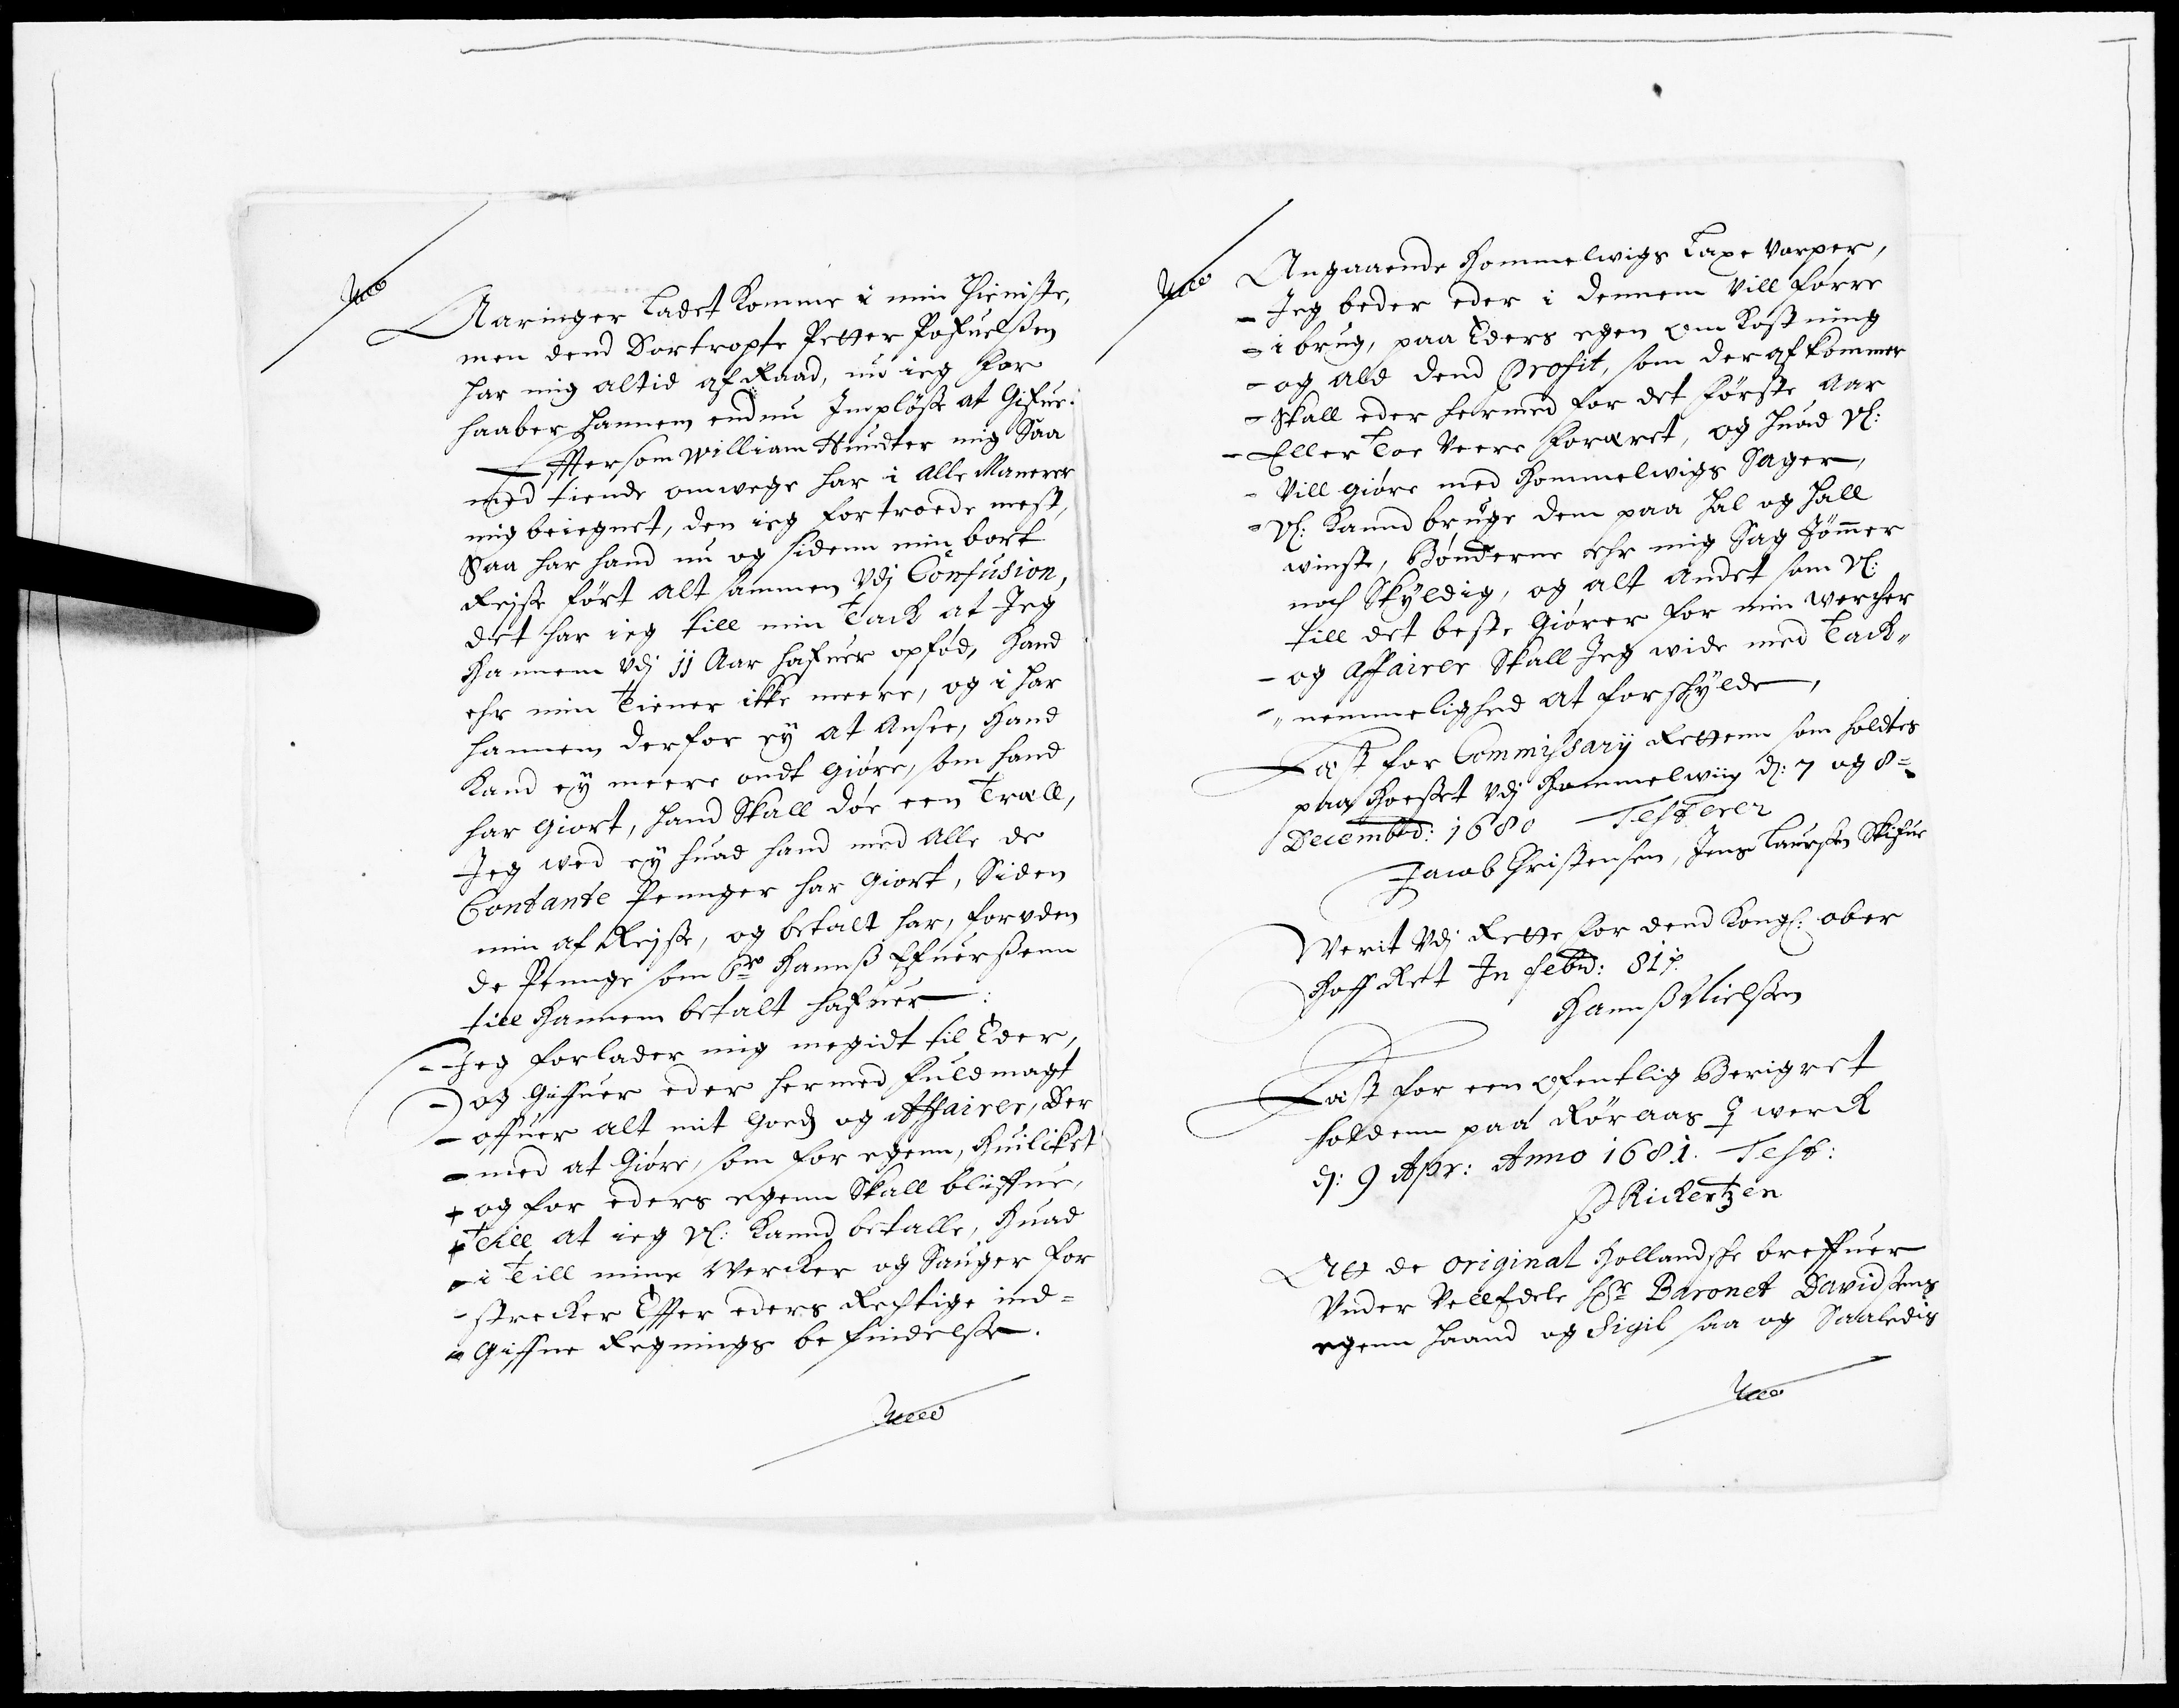 Aaringer ladet komme i min thieniste,
men dend Dortropte Petter Pofuelßen
har mig altid af Raad, nu ieg for
haaber hannem endnu Imploße at Gifue.
Effter som William Hundter mig Saa
med tiende omwege har i alle Manerer
mig beiegnet, den ieg fortroede mest,
Saa har hand nu og sidenn min bort
Reiße ført alt sammen Vdj Confusion,
det har ieg till min Tack at Jeg
Hannem Vdj jj Aar hafuer opfød, hand
ehr min Tiener ikke meere, og i har
hannem derfor eÿ at Ansee, hand
kand eÿ meere ondt giøre, som hand
har giort, hand Skall døe een Træll,
Jeg wed eÿ huad hand med alle de
Contante Pennger har giort, Siden
min af Reiße, og betalt har, foruden
de Pennge som Sr Hannß Efuerßenn
till Hannem betalt hafuer:
Jeg forlader mig megidt til Eder,
og giffuer eder hermed fuldmagt
offuer alt mit goeds og Affairer, der
med at giøre, som for egenn, huilcket
og for eders egenn Skall bliffue,
Till at ieg Vl: kannd betalle, huad
i Till mine Wercker og Sauger for
strecker Effter eders Rechtige ind=
Giffne Regnings befindelße.
Angaaende Hommelwigs Taxe Vorper,
Jeg beder eder i dennem vill førre
i brug, paa Eders egen om kostning
og ald dend Profit, som der af kommer
Skall eder hermed for det første Aar
Eller Toe Veere foræret, og huad Vl:
Vill giøre med Hommelwigs Sager,
Vl: kannd bruge dem paa hal og hall
winste, Bønderne ehr mig Sag Tømmer
noch Skÿldig, og alt andet som Vl:
till det beste giører for min wercher
og Affairer Skall Jeg wide med Tack„
„nemmelighed at forskÿlde,
Læst for Commißarij Rettenn som holdtes
paa Hoeßet Vdj Hommelwiig d: 7 og 8=
Decembr: 1680 Testerer
Jacob Christensen, Jens Laurßen Skifue
Werit Vdj Rette for dend Kongl: ober
Hoff Ret In febr: 81.
Hannß Nielßen
Læst for een ofentlig Berigret
holdenn paa Røraas ♀ werck
d: 9 Apr: Anno 1681. Test:
P Rickertzen
Att de original Hollandske breffuer
Vnder Vellfdele Hr Baronet Davidsens
egenn haand og Sigil saa og Saaledis